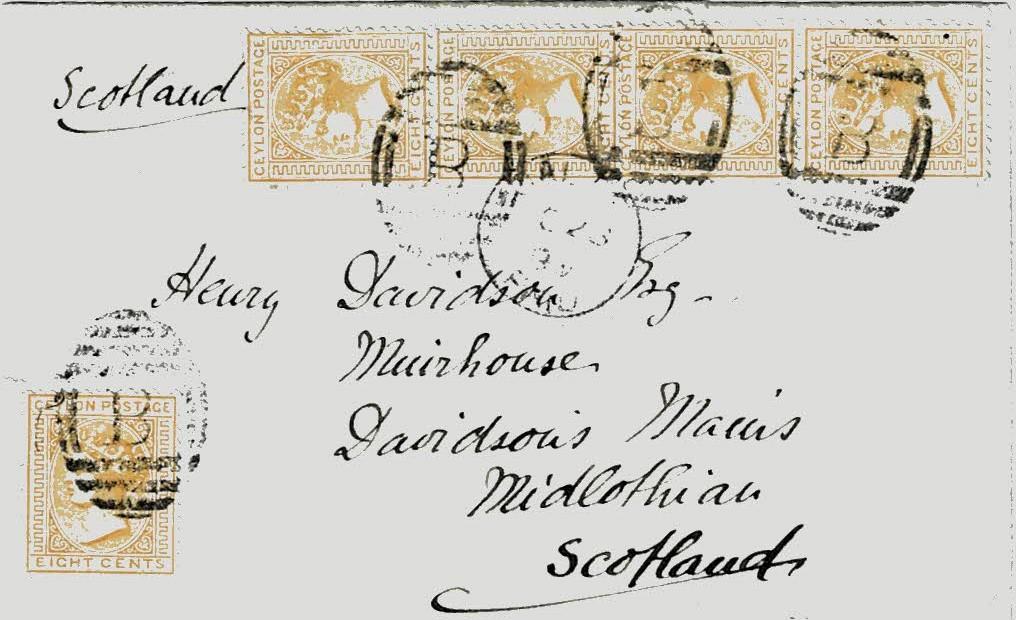 Scotland
CEYLON POSTAGE EIGHT CENTS
CEYLON POSTAGE EIGHT CENTS
CEYLON POSTAGE EIGHT CENTS
CEYLON POSTAGE EIGHT CENTS
B
B
Henry Davidson Esq
Muirhouse
Davidson's Mains
Midlothian
Scotland
CEYLON POSTAGE
B
EIGHT CENTS